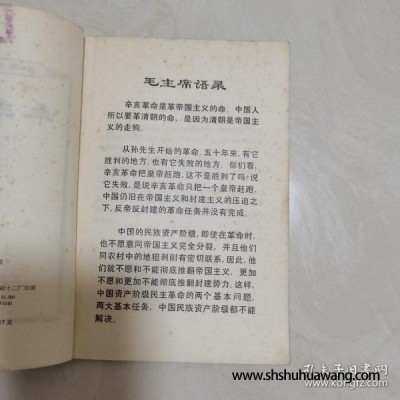 毛主席语录
辛亥革命是革帝国主义的命。中国人
所以要革清朝的命，是因为清朝是帝国主
义的走狗。
从孙先生开始的革命，五十年来，有它
胜利的地方，也有它失败的地方。你们看，
辛亥革命把皇帝赶跑，这不是胜利了吗？说
它失败，是说辛亥革命只把一个皇帝赶跑，
中国仍旧在帝国主义和封建主义的压迫之
下，反帝反封建的革命任务并没有完成。
中国的民族资产阶级，即使在革命时，
也不愿意同帝国主义完全分裂，并且他们
同农村中的地租剥削有密切联系，因此，他
们就不愿和不能彻底推翻帝国主义，更加
不愿和更加不能彻底推翻封建势力。这样，
中国资产阶级民主革命的两个基本问题，
两大基本任务，中国民族资产阶级都不能
解决。
www.shshuhuawang.com